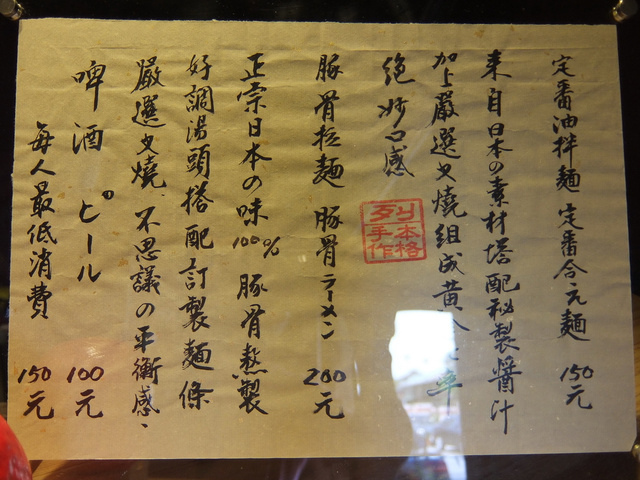 定番油拌麵 定番合え麵 150元
來自日本の素材搭配秘製醬汁
加上嚴選叉燒組成黃金率
絶妙口感
本格
手作
豚骨拉麵 豚骨ラーメン 200元
正宗日本の味 100% 豚骨熬製
好調湯頭搭配訂製麵條
嚴選叉燒、不思議の平衡感、
啤酒 ピール 100元
每人最低消費 150元